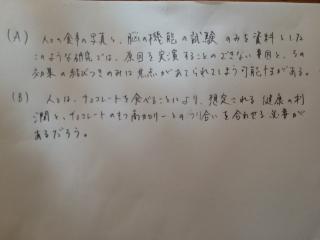 (A) 人々の食事の写真と、脳の機能の試験のみを資料とした
このような研究では、原因を実演することのできない要因と、その
効果の結びつきのみに焦点があてられてしまう可能性がある。
(B) 人々は、チョコレートを食べることにより、想定される健康の利
潤と、チョコレートのもつ高カロリーとのつり合いを合わせる必要が
あるだろう。